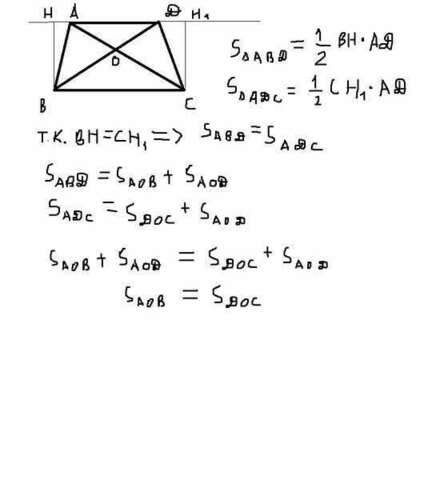 H A D H₁
O
B C
S△ABD = 1/2 BH · AD
S△ADC = 1/2 CH₁ · AD
Т.К. BH = CH₁ => SABD = SADC
SABD = SAOB + SAOD
SADC = SDOC + SAOD
SAOB + SAOD = SDOC + SAOD
SAOB = SDOC